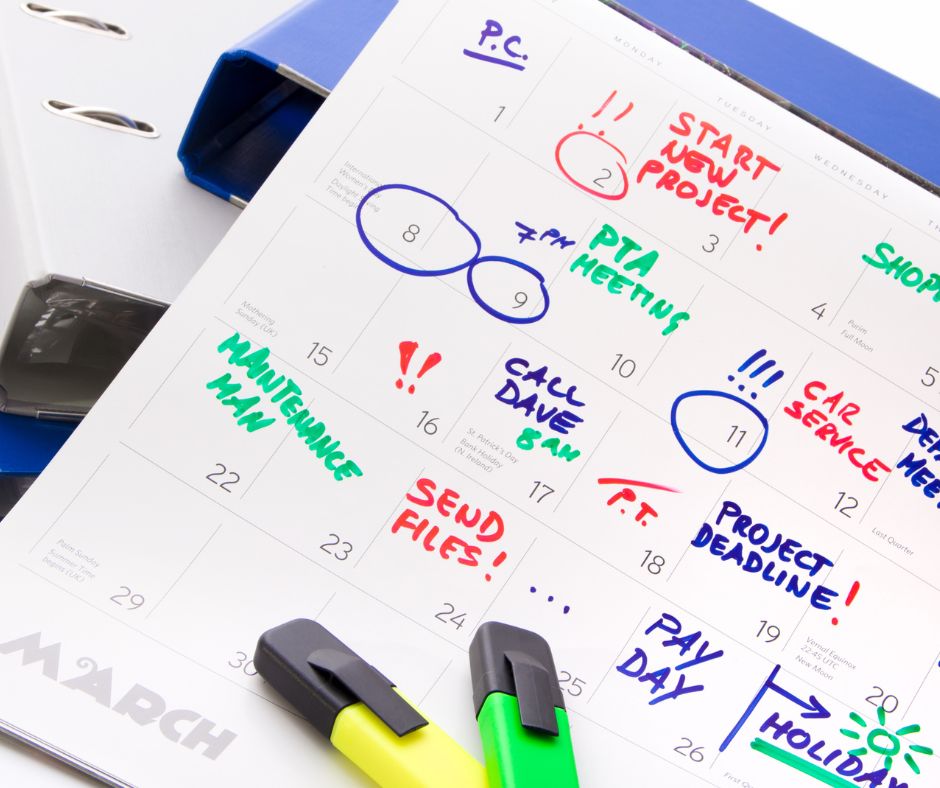 P.C.
MONDAY
TUESDAY
WEDNESDAY
1
!!
2
START
NEW
PROJECT!
3
4
Purim
Full Moon
5
International
Time begins
8
9
7PM
PTA
MEETING
10
!!!
11
CAR
SERVICE
12
Last Quarter
Mothering
Sunday (UK)
15
!!
16
CALL
DAVE
8AM
St. Patrick's Day
Bank Holiday
(N. Ireland)
17
P.T.
18
PROJECT
DEADLINE!
19
Vernal Equinox
22:45 UTC
New Moon
20
MAINTENANCE
MAN
22
23
SEND
FILES!
24
...
25
PAY
DAY
26
HOLIDAY
Palm Sunday
Summer Time
begins (UK)
29
30
MARCH